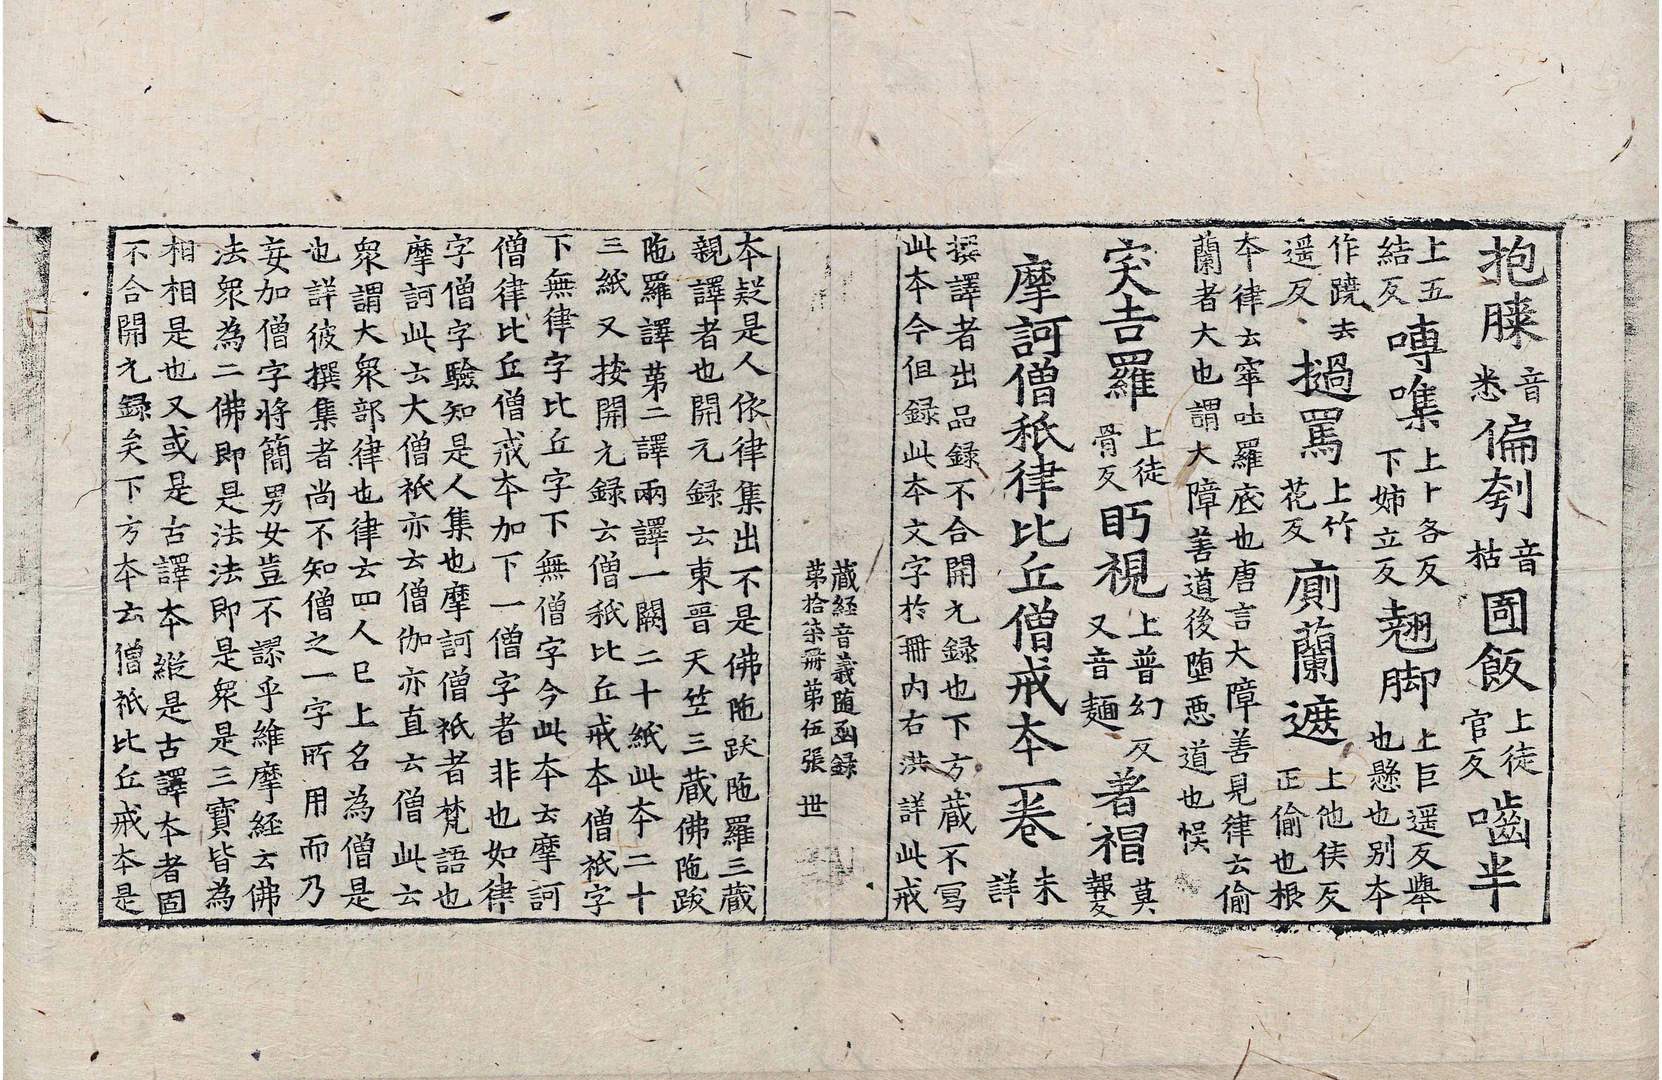 抱膝音悉偏刳音枯圌飯上徒官反嚙半
上五結反㗘㗱上卜各反下姉立反翹脚上巨遥反舉也懸也別本
作蹺去遥反撾罵上竹花反廁蘭遮上他侠反正偷也根
本律云窂吐羅底也唐言大障善見律云偷
蘭者大也謂大障善道後堕惡道也悮
突吉羅上徒骨反眄視上普幻反又音麵著帽莫報反
摩訶僧秖律比丘僧戒本一卷未詳
撰譯者出品録不合開元録也下方蔵不冩
此本今但録此本文字於冊内右洪詳此戒
藏經音義随函録
第拾柒冊第伍張 世
本疑是人依律集出不是佛陁跋陁羅三蔵
親譯者也開元録云東晋天竺三蔵佛陁跋
陁羅譯第二譯兩譯一闕二十紙此本二十
三紙又按開元録云僧秖比丘戒本僧祇字
下無律字比丘字下無僧字今此本云摩訶
僧律比丘僧戒本加下一僧字者非也如律
字僧字驗知是人集也摩訶僧祇者梵語也
摩訶此云大僧祇亦云僧伽亦直云僧此云
衆謂大衆部律也律云四人已上名為僧是
也詳彼撰集者尚不知僧之一字所用而乃
妄加僧字将簡男女豈不謬乎維摩經云佛
法衆為二佛即是法法即是衆是三寶皆為
相相是也又或是古譯本縱是古譯本者固
不合開元録矣下方本云僧祇比丘戒本是